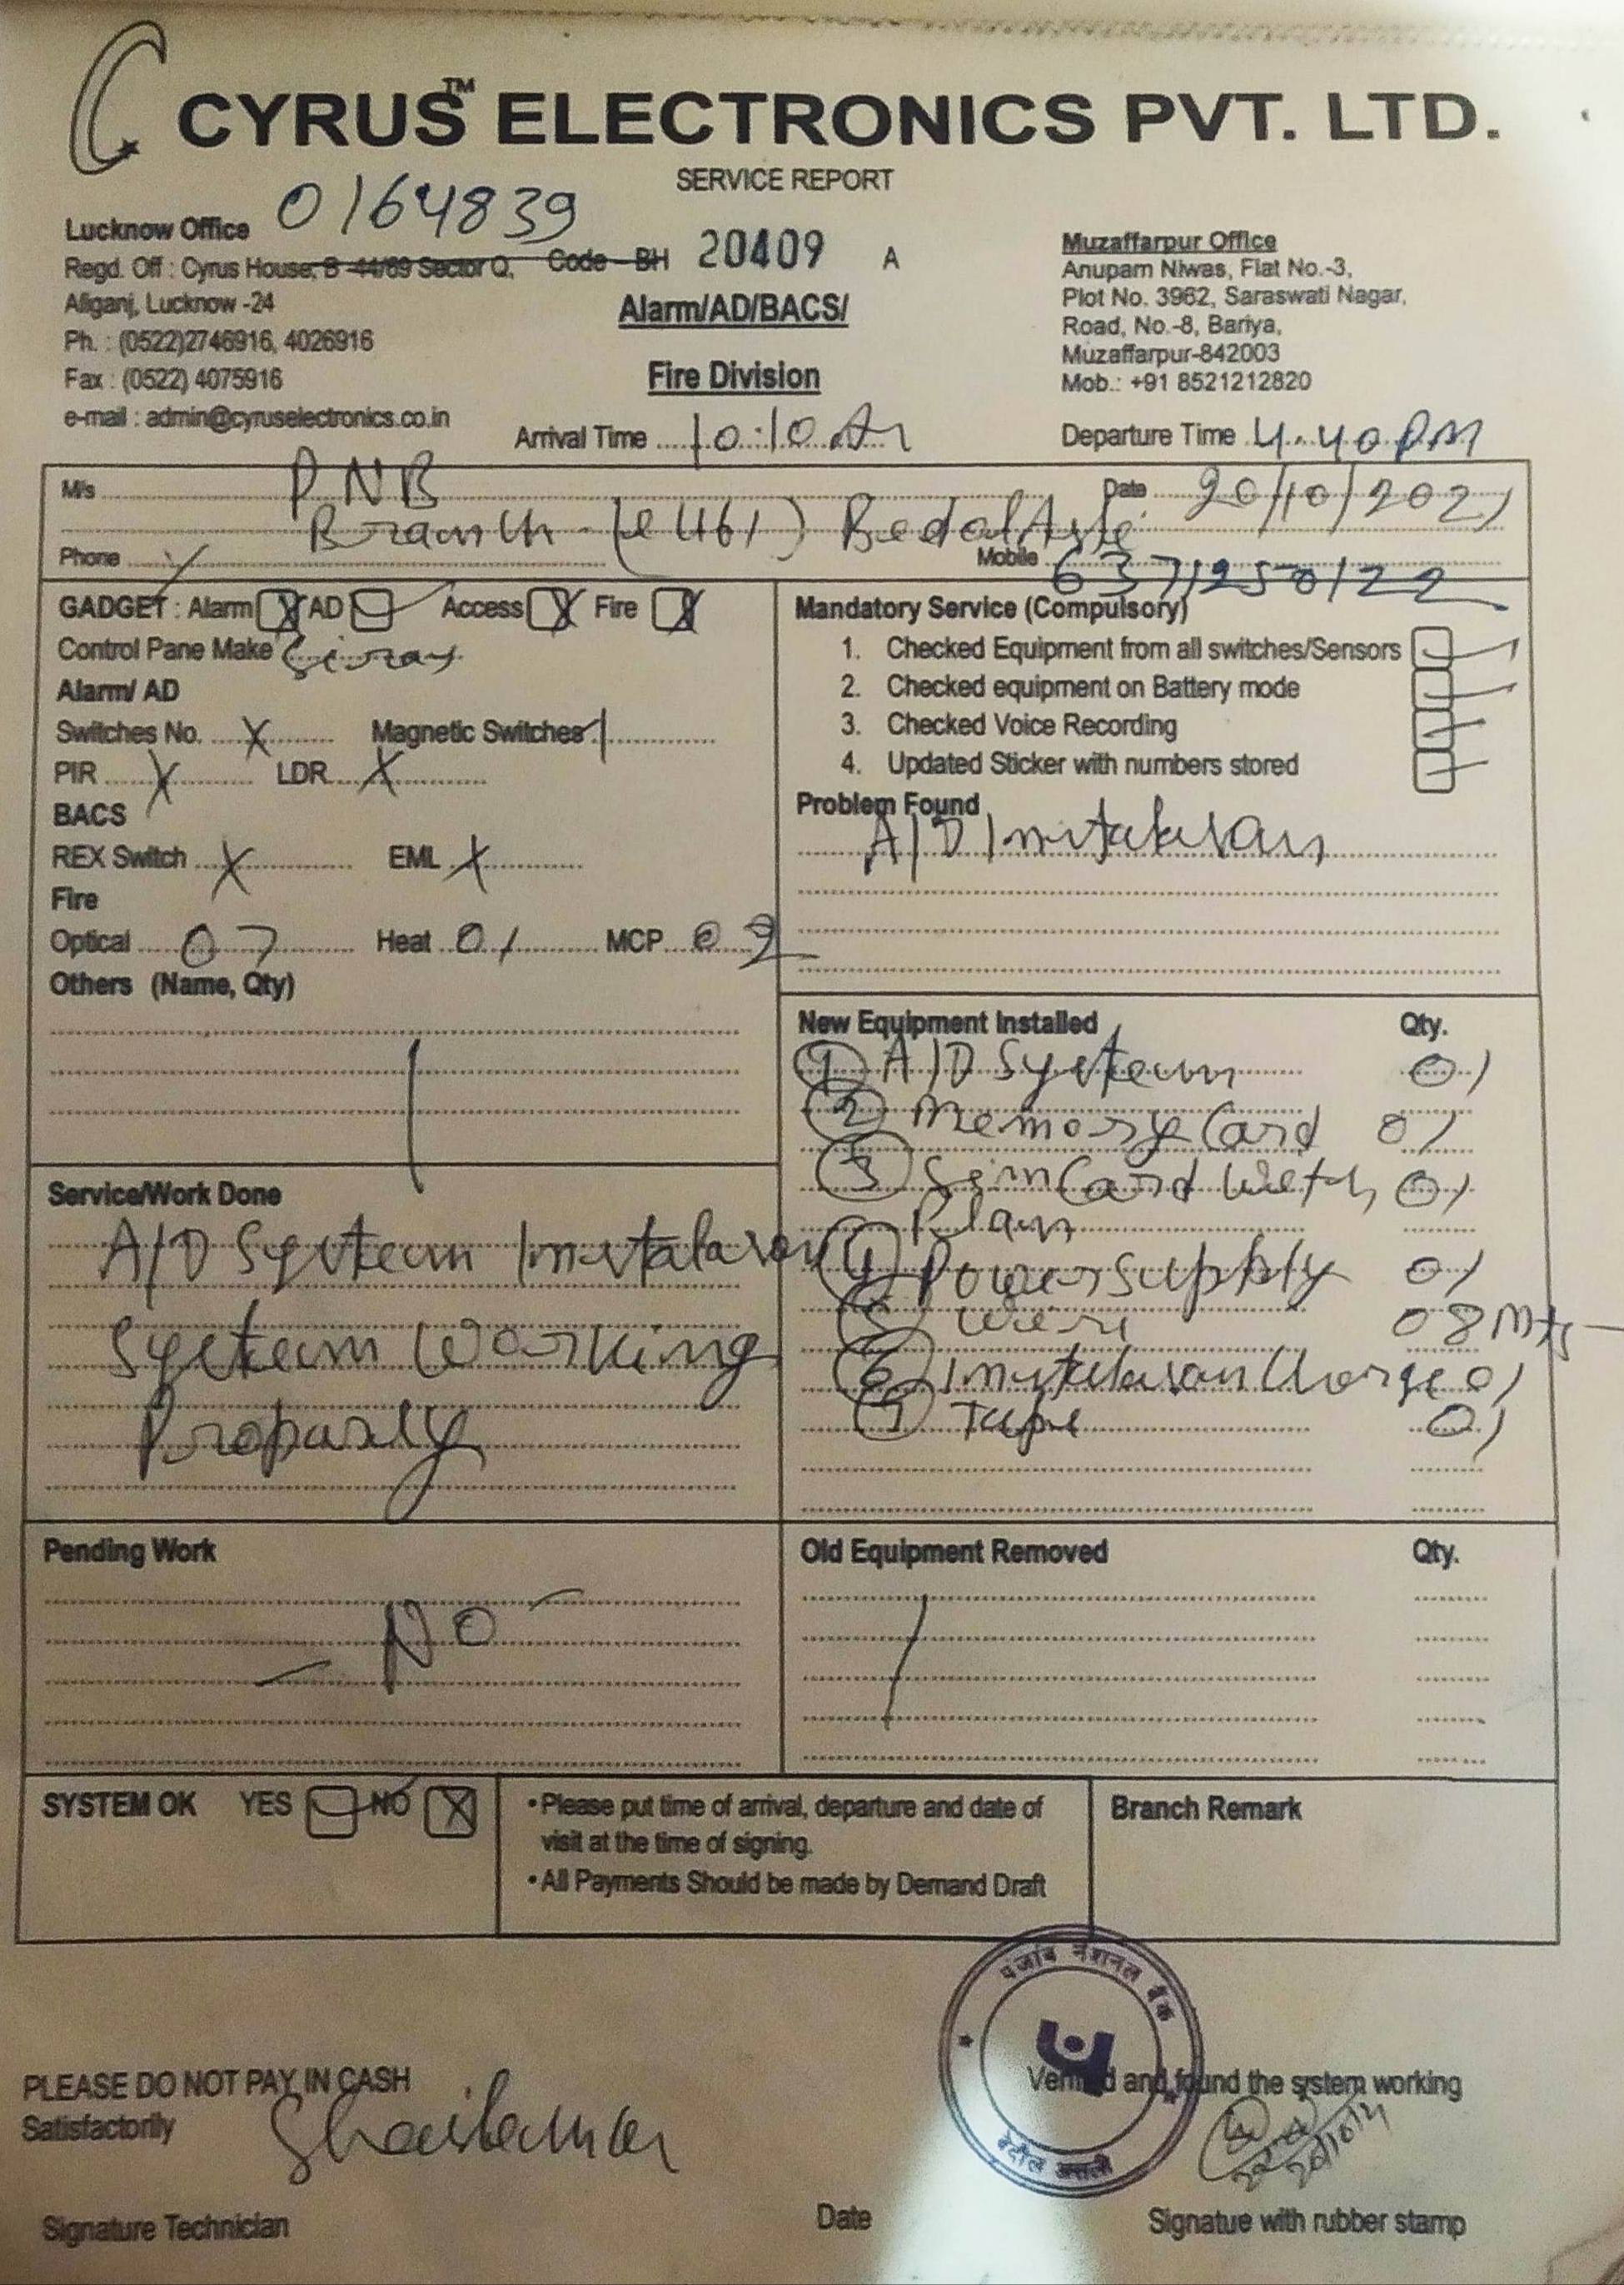 CYRUS™ ELECTRONICS PVT. LTD.
SERVICE REPORT
0164839
Lucknow Office
Regd. Off : Cyrus House, B-44/69 Sector Q,
Aliganj, Lucknow -24
Ph. : (0522)2746916, 4026916
Fax : (0522) 4075916
e-mail : admin@cyruselectronics.co.in
Code - BH 20409 A
Alarm/AD/BACS/
Fire Division
Muzaffarpur Office
Anupam Niwas, Flat No.-3,
Plot No. 3962, Saraswati Nagar,
Road, No.-8, Bariya,
Muzaffarpur-842003
Mob.: +91 8521212820
Arrival Time 10:10 A
Departure Time 4.40 PM
M/s PNB
Date 20/10/2021
Branch
Phone
Mobile 6371250122
GADGET : Alarm X AD Access X Fire X
Control Pane Make
Alarm/ AD
Switches No. X Magnetic Switches 1
PIR X LDR X
BACS
REX Switch X EML X
Fire
Optical 07 Heat 01 MCP 02
Others (Name, Qty)
Mandatory Service (Compulsory)
1. Checked Equipment from all switches/Sensors
2. Checked equipment on Battery mode
3. Checked Voice Recording
4. Updated Sticker with numbers stored
Problem Found
A/D Instalasan
New Equipment Installed Qty.
1 A/D Systeam 01
2 Memory Card 01
3 Sim Card Weth 01
Plan
4 Power Supply 01
5 Wire 08 Mts
6 Instalasan Charge 01
7 Tape 01
Service/Work Done
A/D Systeam Instalason
Systeam Working
Proparly
Pending Work
- No -
Old Equipment Removed Qty.
SYSTEM OK YES NO X
• Please put time of arrival, departure and date of
visit at the time of signing.
• All Payments Should be made by Demand Draft
Branch Remark
पंजाब नैशनल बैंक
PLEASE DO NOT PAY IN CASH
Verified and found the system working
Satisfactorily
20/10/21
Signature Technician
Date
Signatue with rubber stamp